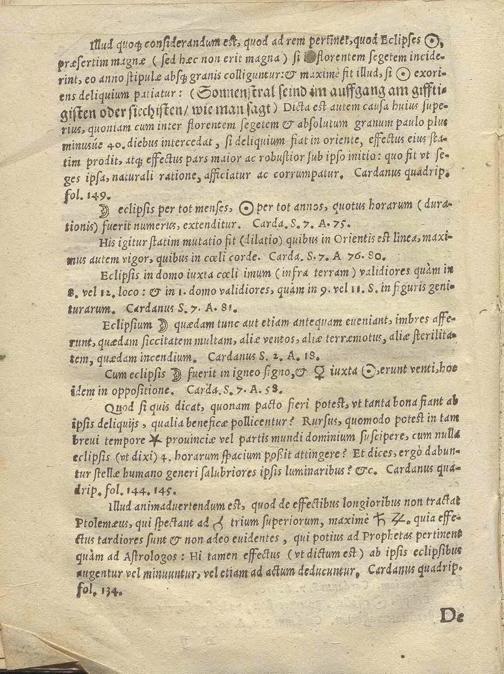 Illud quoq; considerandum est, quod ad rem pertinet, quod Eclipses ☉,
præsertim magnæ (sed hæc non erit magna) si in florentem segetem incide-
rint, eo anno stipulæ absq; granis colliguntur: & maximè fit illud, si ☉ exori-
ens deliquium patiatur: (Sonnenstral seind im auffgang am giffti-
gisten oder siechisten / wie man sagt) Dicta est autem causa huius supe-
rius, quoniam cum inter florentem segetem & absolutum granum paulo plus
minusue 40. diebus intercedat, si deliquium fiat in oriente, effectus eius sta-
tim prodit, atq; effectus pars maior ac robustior sub ipso initio: quo fit vt se-
ges ipsa, naturali ratione, afficiatur ac corrumpatur. Cardanus quadrip.
fol. 149.
☽ eclipsis per tot menses, ☉ per tot annos, quotus horarum (dura-
tionis) fuerit numerus, extenditur. Carda. S. 7. A. 75.
His igitur statim mutatio fit (dilatio) quibus in Orientis est linea, maxi-
mus autem vigor, quibus in cœli corde. Carda. S. 7. A 76. 80.
Eclipsis in domo iuxta cœli imum (infra terram) validiores quàm in
8. vel 12. loco: & in 1. domo validiores, quàm in 9. vel 11. S. in figuris geni-
turarum. Cardanus S. 7. A. 81.
Eclipsium ☽ quædam tunc aut etiam antequam eueniant, imbres affe-
runt, quædam siccitatem multam, aliæ ventos, aliæ terræmotus, aliæ sterilita-
tem, quædam incendium. Cardanus S. 2. A. 18.
Cum eclipsis ☽ in igneo signo, & ♀ iuxta ☉, erunt venti, hoc
idem in oppositione. Carda. S. 7. A. 58.
Quod si quis dicat, quonam pacto fieri potest, vt tanta bona fiant ab
ipsis deliquijs, qualia beneficæ pollicentur? Rursus, quomodo potest in tam
breui tempore ✶ prouinciæ vel partis mundi dominium suscipere, cum nulla
eclipsis (vt dixi) 4. horarum spacium possit attingere? Et dices, ergò dabun-
tur stellæ humano generi salubriores ipsis luminaribus? &c. Cardanus qua-
drip. fol. 144. 145.
Illud animaduertendum est, quod de effectibus longioribus non tractat
Ptolemæus, qui spectant ad ☌ trium superiorum, maximè ♄ ♃. quia effe-
ctus tardiores sunt & non adeo euidentes, qui potius ad Prophetas pertinent
quàm ad Astrologos: Hi tamen effectus (vt dictum est) ab ipsis eclipsibus
augentur vel minuuntur, vel etiam ad actum deducuntur. Cardanus quadrip.
fol. 134.
De